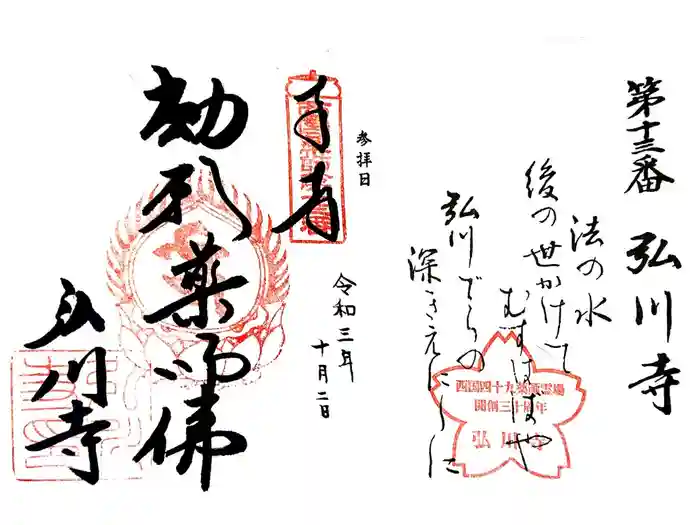 第十三番 弘川寺
法の水
後の世かけて
むすはばや
弘川でらの
深きえにしに
西国四十九薬師霊場
開創三十周年
弘川寺
参拝日
令和三年
十月二日
奉拝
薬师佛
弘川寺